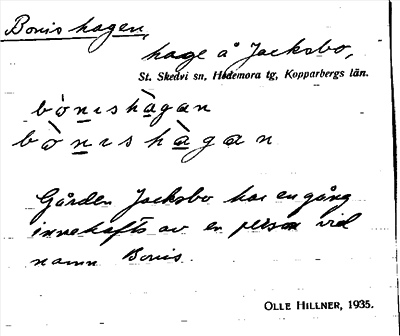 Bonishagen,
hage å Jacksbo,
St. Skedvi sn, Hedemora tg, Kopparbergs län.
bò̀nıshàgan
bò̀nıshàgan
Gården Jacksbo har en gång
innehafts av en person vid
namn Bonis.
OLLE HILLNER, 1935.